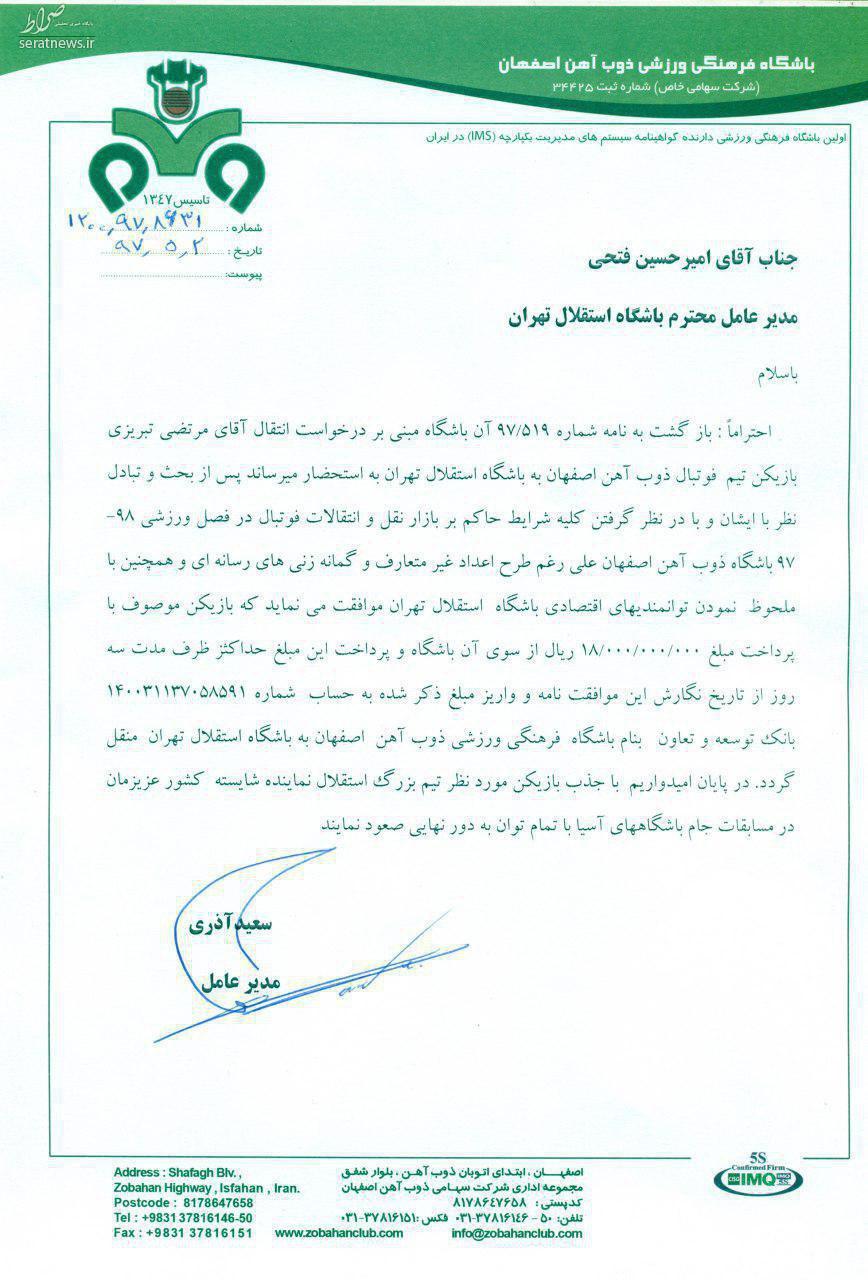 صراط
seratnews.ir
باشگاه فرهنگی ورزشی ذوب آهن اصفهان
(شرکت سهامی خاص) شماره ثبت ۳۴۴۲۵
اولین باشگاه فرهنگی ورزشی دارنده گواهینامه سیستم های مدیریت یکپارچه (IMS) در ایران
تاسیس ۱۳۴۷
شماره :
تاریخ : ۹۷,۵,۲
پیوست:
جناب آقای امیرحسین فتحی
مدیر عامل محترم باشگاه استقلال تهران
باسلام
احتراماً : باز گشت به نامه شماره ۹۷/۵۱۹ آن باشگاه مبنی بر درخواست انتقال آقای مرتضی تبریزی
بازیکن تیم فوتبال ذوب آهن اصفهان به باشگاه استقلال تهران به استحضار میرساند پس از بحث و تبادل
نظر با ایشان و با در نظر گرفتن کلیه شرایط حاکم بر بازار نقل و انتقالات فوتبال در فصل ورزشی ۹۸-
۹۷ باشگاه ذوب آهن اصفهان علی رغم طرح اعداد غیر متعارف و گمانه زنی های رسانه ای و همچنین با
ملحوظ نمودن توانمندیهای اقتصادی باشگاه استقلال تهران موافقت می نماید که بازیکن موصوف با
پرداخت مبلغ ۱۸/۰۰۰/۰۰۰/۰۰۰ ریال از سوی آن باشگاه و پرداخت این مبلغ حداکثر ظرف مدت سه
روز از تاریخ نگارش این موافقت نامه و واریز مبلغ ذکر شده به حساب شماره ۱۴۰۰۳۱۱۳۷۰۵۸۵۹۱
بانک توسعه و تعاون بنام باشگاه فرهنگی ورزشی ذوب آهن اصفهان به باشگاه استقلال تهران منقل
گردد. در پایان امیدواریم با جذب بازیکن مورد نظر تیم بزرگ استقلال نماینده شایسته کشور عزیزمان
در مسابقات جام باشگاههای آسیا با تمام توان به دور نهایی صعود نمایند
سعید آذری
مدیر عامل
Address : Shafagh Blv. ,
Zobahan Highway , Isfahan , Iran.
Postcode : 8178647658
Tel : +9831 37816146-50
Fax : +9831 37816151
www.zobahanclub.com
اصفهـــان ، ابتدای اتوبان ذوب آهـن ، بلوار شفق
مجموعه اداری شرکت سهـامی ذوب آهن اصفهان
کدپستی : ۸۱۷۸۶۴۷۶۵۸
تلفن: ۵۰ - ۰۳۱-۳۷۸۱۶۱۴۶ فکس :۰۳۱-۳۷۸۱۶۱۵۱
info@zobahanclub.com
5S
Confirmed Firm
CISQ IMQ IMQ 5S